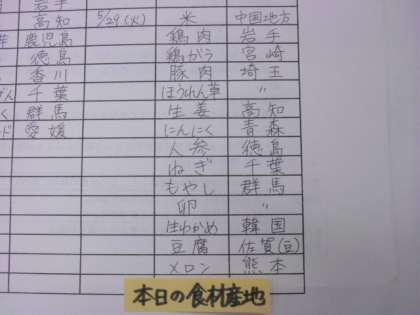 岩手
高知 5/29(火) 米 中国地方
鹿児島 鶏肉 岩手
徳島 鶏がら 宮崎
香川 豚肉 埼玉
千葉 ほうれん草 〃
群馬 生姜 高知
愛媛 にんにく 青森
人参 徳島
ねぎ 千葉
もやし 群馬
卵 〃
生わかめ 韓国
豆腐 佐賀(豆)
メロン 熊本
本日の食材産地